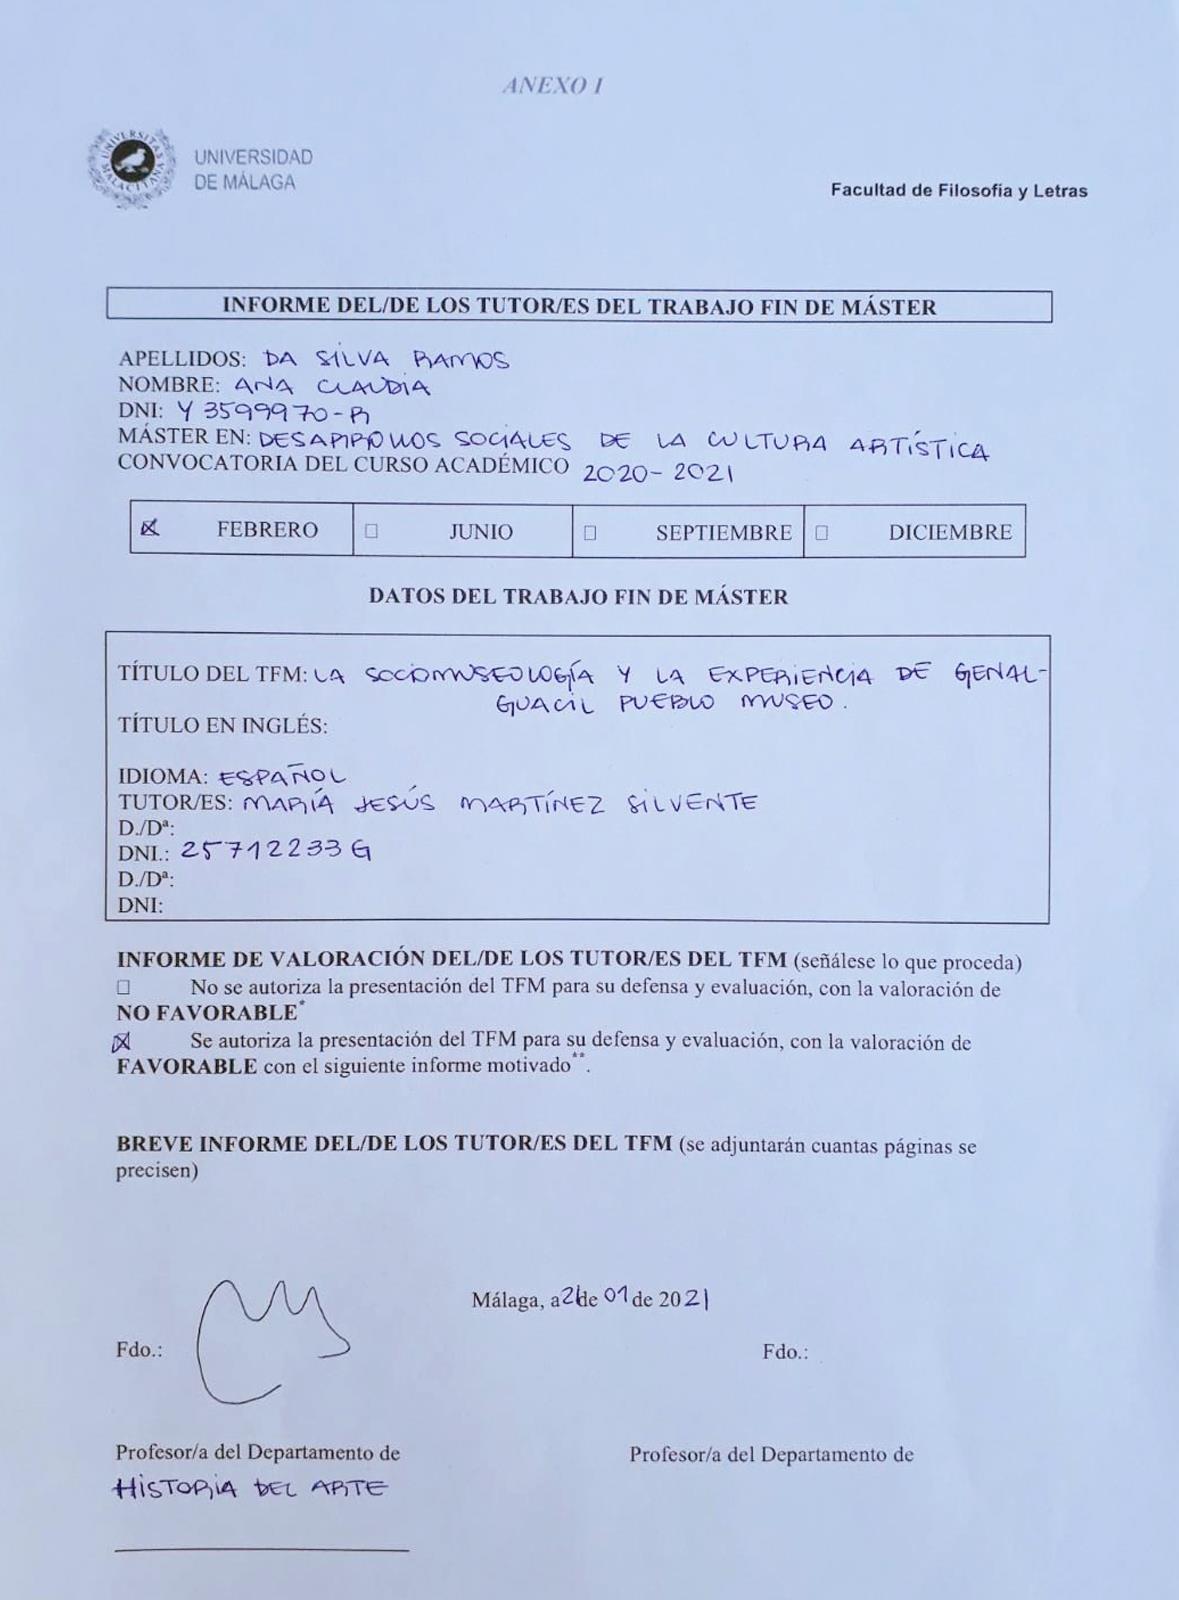 ANEXO I
UNIVERSITAS MALACITANA
UNIVERSIDAD
DE MÁLAGA
Facultad de Filosofía y Letras
INFORME DEL/DE LOS TUTOR/ES DEL TRABAJO FIN DE MÁSTER
APELLIDOS: DA SILVA RAMOS
NOMBRE: ANA CLAUDIA
DNI: Y3599970-R
MÁSTER EN: DESARROLLOS SOCIALES DE LA CULTURA ARTÍSTICA
CONVOCATORIA DEL CURSO ACADÉMICO 2020-2021
☒ FEBRERO ☐ JUNIO ☐ SEPTIEMBRE ☐ DICIEMBRE
DATOS DEL TRABAJO FIN DE MÁSTER
TÍTULO DEL TFM: LA SOCIOMUSEOLOGÍA Y LA EXPERIENCIA DE GENAL-
GUACIL PUEBLO MUSEO.
TÍTULO EN INGLÉS:
IDIOMA: ESPAÑOL
TUTOR/ES: MARÍA JESÚS MARTÍNEZ SILVENTE
D./Dª:
DNI.: 25712233G
D./Dª:
DNI:
INFORME DE VALORACIÓN DEL/DE LOS TUTOR/ES DEL TFM (señálese lo que proceda)
☐ No se autoriza la presentación del TFM para su defensa y evaluación, con la valoración de
NO FAVORABLE*
☒ Se autoriza la presentación del TFM para su defensa y evaluación, con la valoración de
FAVORABLE con el siguiente informe motivado**.
BREVE INFORME DEL/DE LOS TUTOR/ES DEL TFM (se adjuntarán cuantas páginas se
precisen)
Málaga, a 21 de 01 de 2021
Fdo.: Fdo.:
Profesor/a del Departamento de Profesor/a del Departamento de
HISTORIA DEL ARTE